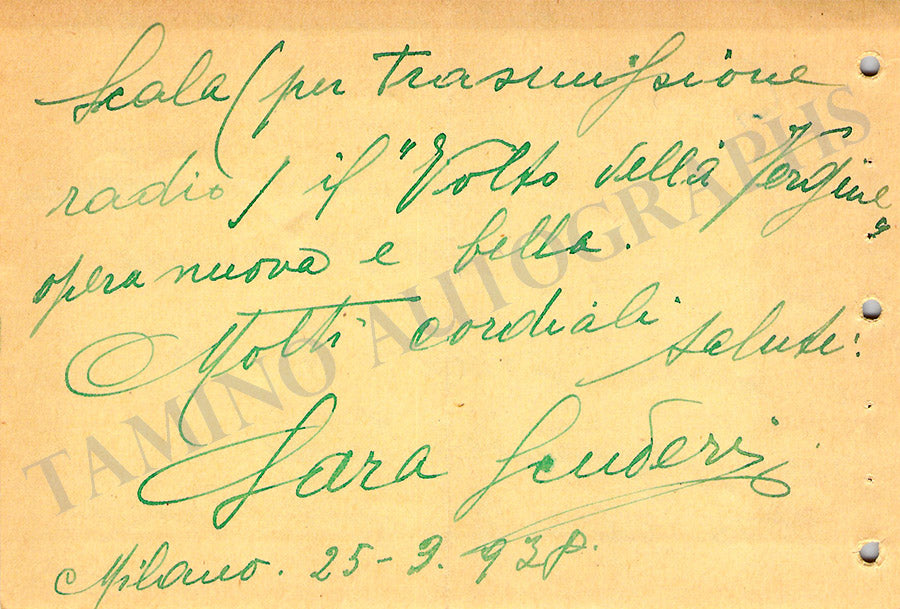 Scala (per trasmissione
radio) il "Volto della Vergine"
opera nuova e bella.
Molti cordiali saluti!
Sara Scuderi
Milano. 25-3.938.
TAMINO AUTOGRAPHS